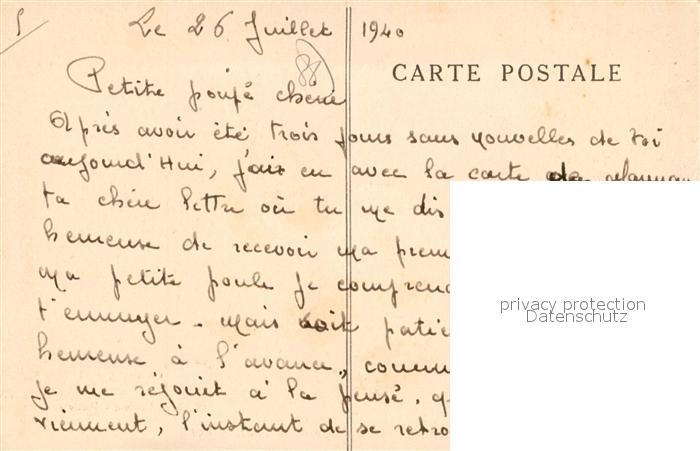 Le 26 Juillet 1940
88
CARTE POSTALE
Petite poupé chérie
Après avoir été trois jours sans nouvelles de toi
aujourd'Hui, j'ai eu avec la carte de Maman
ta chère lettre où tu me dis
heureuse de recevoir ma prem
Ma petite poule je comprend
t'ennuyer. Mais soit patie
heureuse à l'avance, comm
je me réjouit à la pensé, q
viennent, l'instant de se retro
privacy protection
Datenschutz